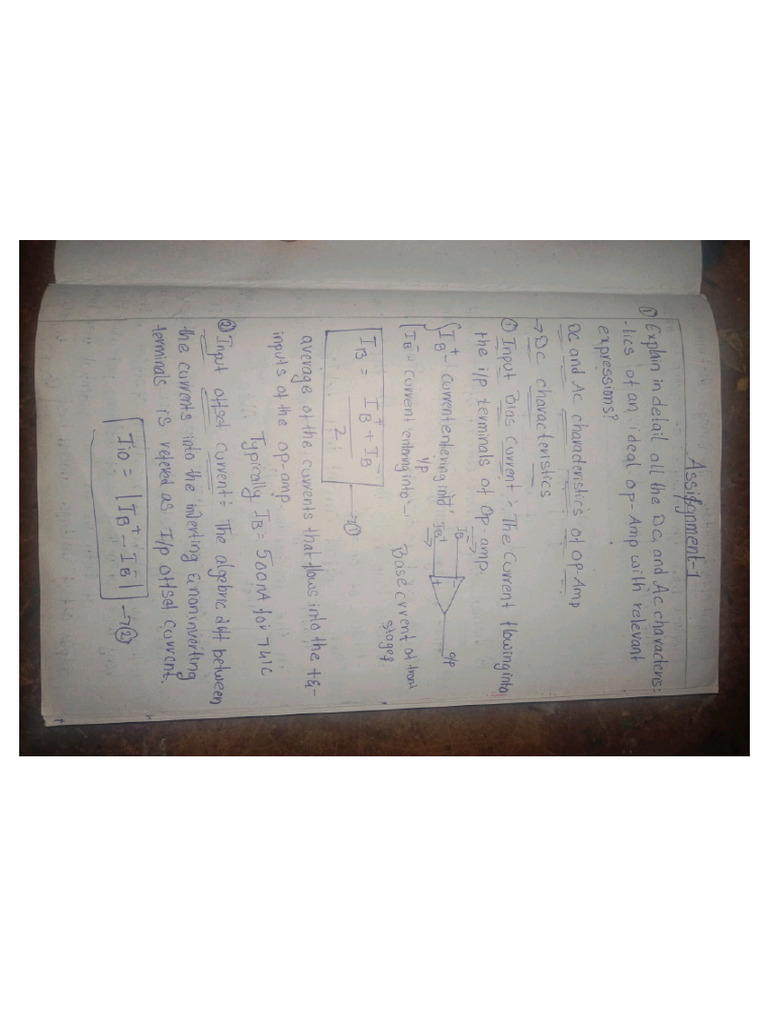 Assignment-1
① Explain in detail all the DC, and AC characteris:
-tics of an, ideal op-Amp with relevant
expressions?
DC and AC characteristics of op-Amp
→ DC characteristics
① Input Bias Current :- The Current flowing into
the i/p terminals of Op-amp.
I_B^+ - current entering into '+' i/p
I_B^- = current entering into -
I_B^-
I_B^+
o/p
Base current of front stages
I_B = (I_B^+ + I_B^-) / 2 → ①
average of the currents that flows into the + & -
inputs of the op-amp
Typically I_B = 500nA for 741C
② Input offset current :- The algebric diff between
the currents into the inverting & noninverting
terminals is refered as I/p offset current.
I_io = |I_B^+ - I_B^-| → ②